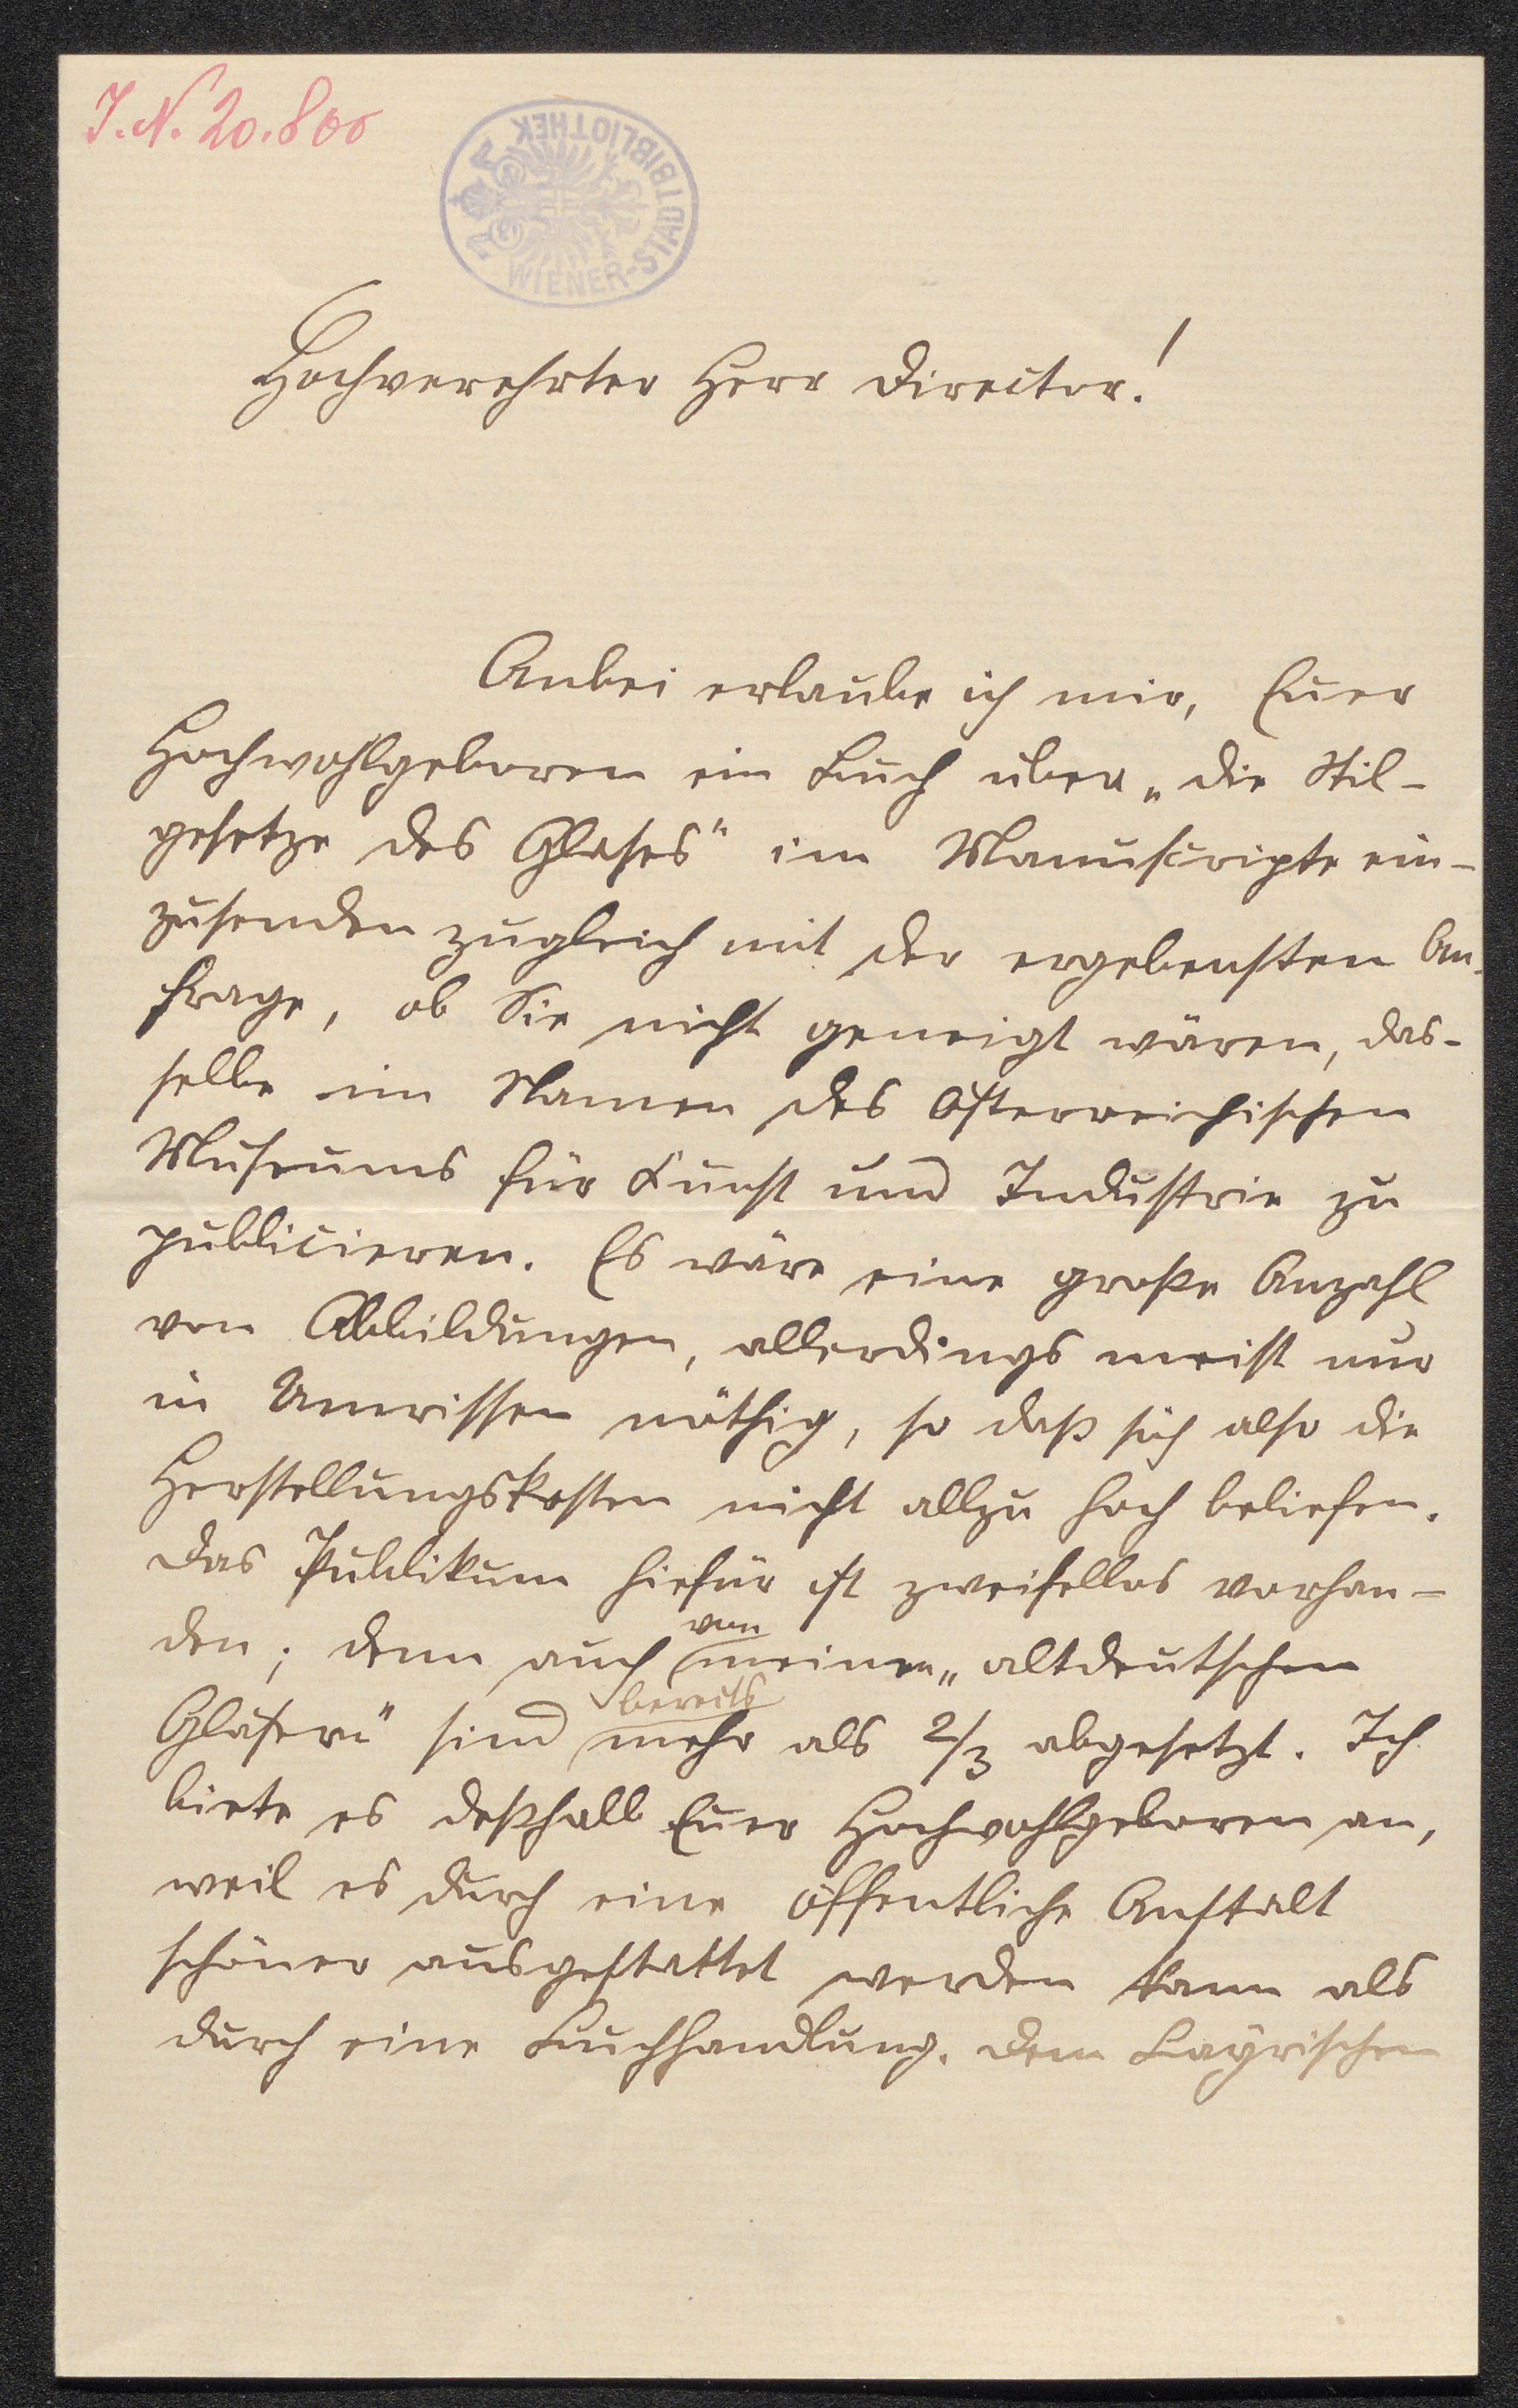 J. N. 20.800
WIENER-STADTBIBLIOTHEK
Hochverehrter Herr Director!
Anbei erlaube ich mir, Euer
Hochwohlgeboren ein Buch über „die Stil-
gesetze des Glases" im Manuscripte ein-
zusenden zugleich mit der ergebensten An-
frage, ob Sie nicht geneigt wären, das-
selbe im Namen des österreichischen
Museums für Kunst und Industrie zu
publicieren. Es wäre eine große Anzahl
von Abbildungen, allerdings meist nur
in Umrissen nöthig, so daß sich also die
Herstellungskosten nicht allzu hoch beliefen.
Das Publikum hiefür ist zweifellos vorhan-
den; denn auch von meinen „altdeutschen
Gläsern" sind bereits mehr als 2/3 abgesetzt. Ich
biete es deßhalb Euer Hochwohlgeboren an,
weil es durch eine öffentliche Anstalt
schöner ausgestattet werden kann als
durch eine Buchhandlung. Dem Bayrischen